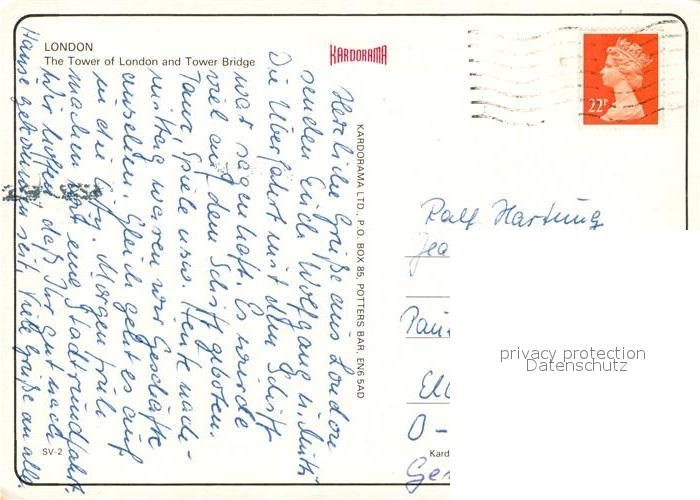 LONDON
The Tower of London and Tower Bridge
KARDORAMA
22P
KARDORAMA LTD., P.O. BOX 85, POTTERS BAR, EN6 5AD
Herzliche Grüße aus London
senden Euch Wolfgang u.
Die Überfahrt mit dem Schiff
war sagenhaft. Es wurde
viel auf dem Schiff geboten.
Tanz, Spiele usw. Heute nach-
mittag waren wir Geschäfte
ansehen. Gleich geht es auf
in die City. Morgen früh
machen wir eine Stadtrundfahrt.
Wir hoffen, daß Ihr gut nach
Hause gekommen seid. Viele Grüße an alle
Ralf Hartung
Jea
Pau
O-
Ger
SV-2
Kard
privacy protection
Datenschutz